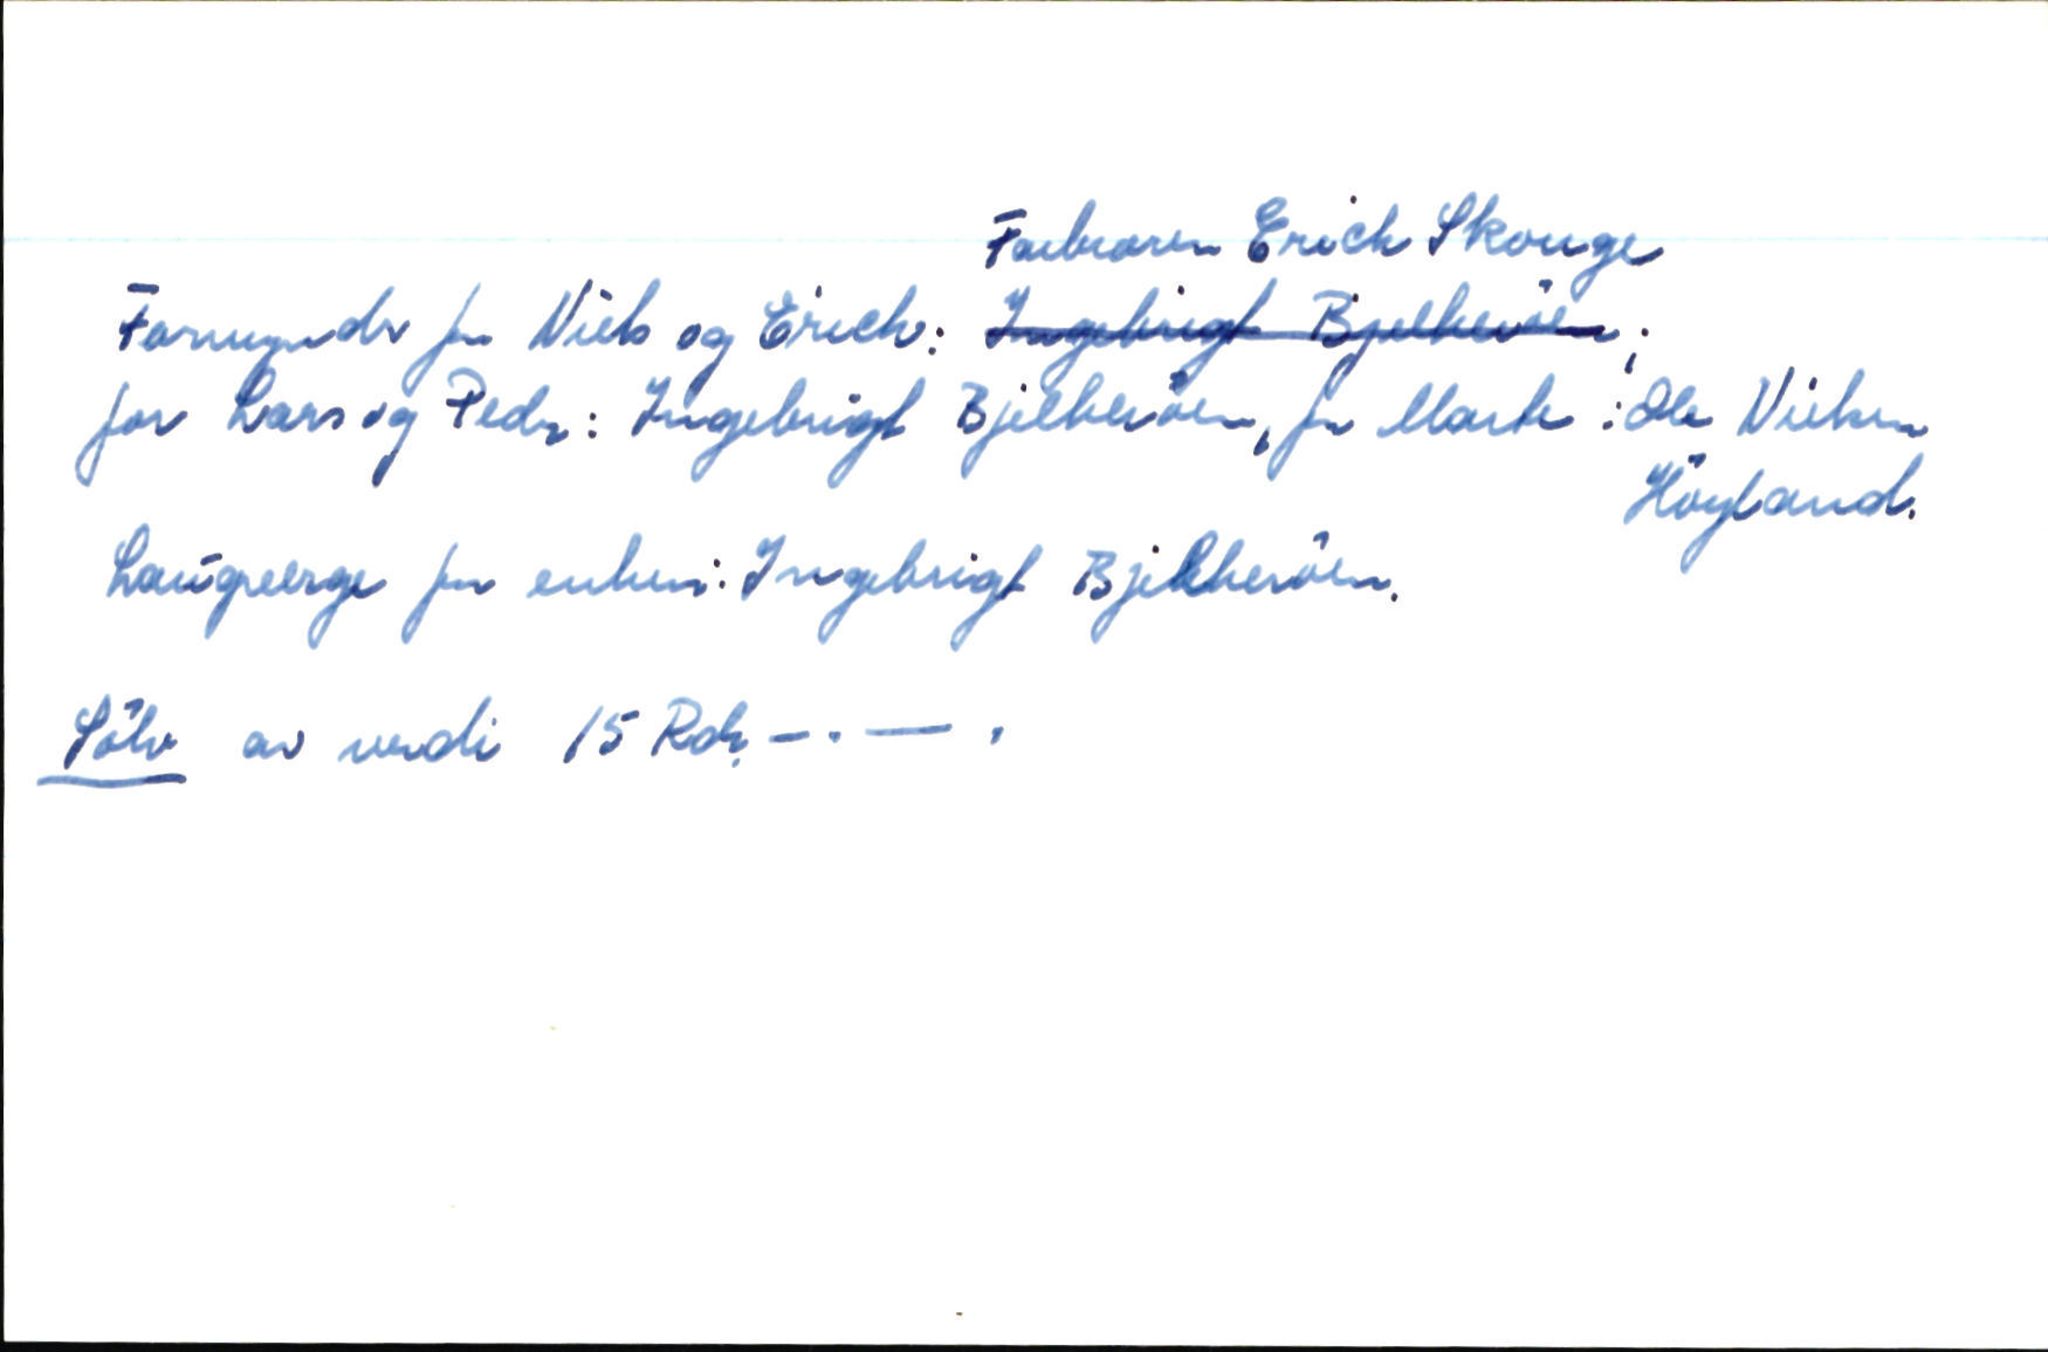 Farbroren Erich Skouge
Formynder for Niels og Erich: Ingebrigt Bjelkeröen;
for Lars og Peder: Ingebrigt Bjelkeröen, for Marte: Ole Nielsen
Höyland.
Laugverge for enken: Ingebrigt Bjelkeröen.
Sölv av verdi 15 Rdr. — . — .